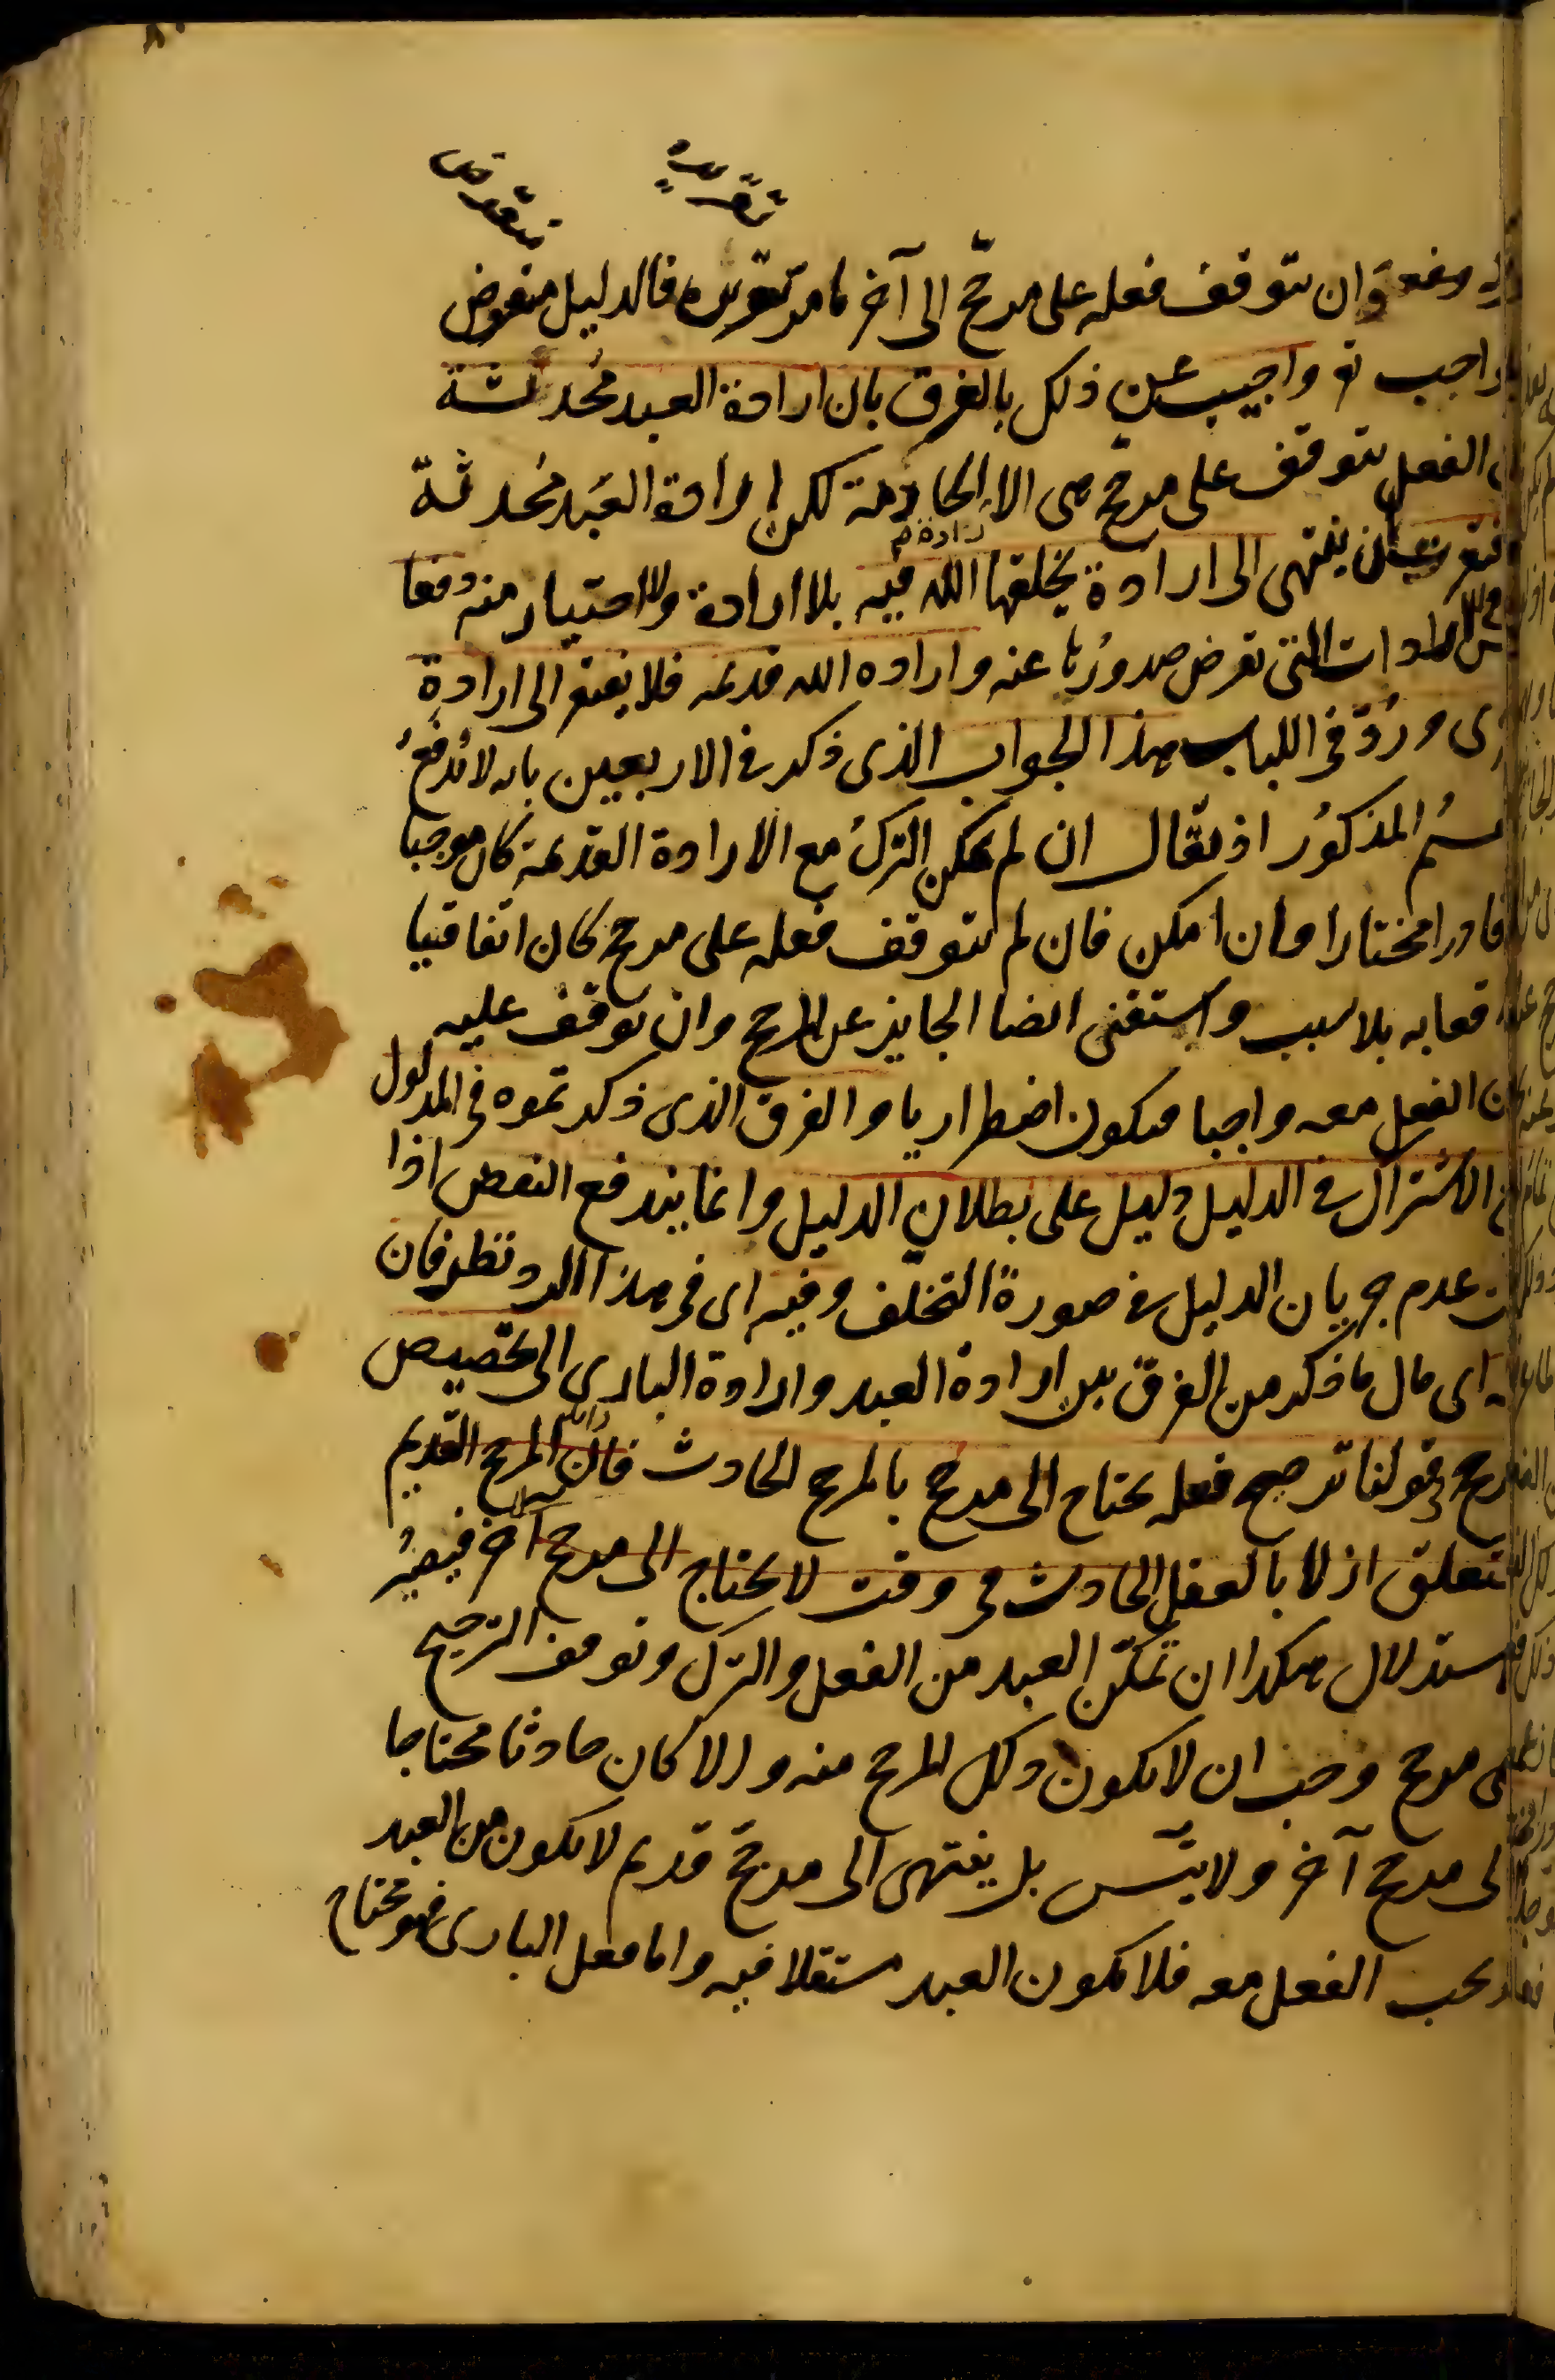 وان يتوقف فعله على مرجح الى آخر ما مر تقريره فالدليل منقوض
بالواجب تع واجيب عن ذلك بالفرق بان ارادة العبد محدثة
الفعل يتوقف على مرجح هى الارادة الجازمة لكن ارادة العبد محدثة
فتقرت الى ان ينتهى الى ارادة يخلقها الله فيه بلا ارادة ولا اختيار منه دفعا
للتس فى الارادات التى تفرض صدورها عنه وارادة الله قديمة فلا يفتقر الى ارادة
اخرى ورد فى اللباب هذا الجواب الذى ذكر فى الاربعين بانه لا يدفع
التقسيم المذكور اذ يقال ان لم يمكن الترك مع الارادة القديمة كان موجبا
لا قادرا مختارا وان امكن فان لم يتوقف فعله على مرجح كان اتفاقيا
واقعا به بلا سبب واستغنى ايضا الجايز عن المرجح وان توقف عليه
كان الفعل معه واجبا فيكون اضطراريا والفرق الذى ذكرتموه فى المدلول
مع الاشتراك فى الدليل دليل على بطلان الدليل وانما يندفع النقض اذا
بين عدم جريان الدليل فى صورة التخلف وفيه اى فى هذا الرد نظر فان
اى مال ما ذكر من الفرق بين ارادة العبد وارادة البارى الى تخصيص
المرجح فى قولنا ترجيح فعله يحتاج الى مرجح بالمرجح الحادث فان المرجح القديم
المتعلق ازلا بالفعل الحادث فى وقت لا يحتاج الى مرجح آخر فيصير
الاستدلال هكذا ان تمكن العبد من الفعل والترك وتوقف الترجيح
على مرجح وجب ان لا يكون ذلك المرجح منه والا كان حادثا محتاجا
الى مرجح آخر ولا يتس بل ينتهى الى مرجح قديم لا يكون من العبد
ويجب الفعل معه فلا يكون العبد مستقلا فيه واما فعل البارى فهو محتاج